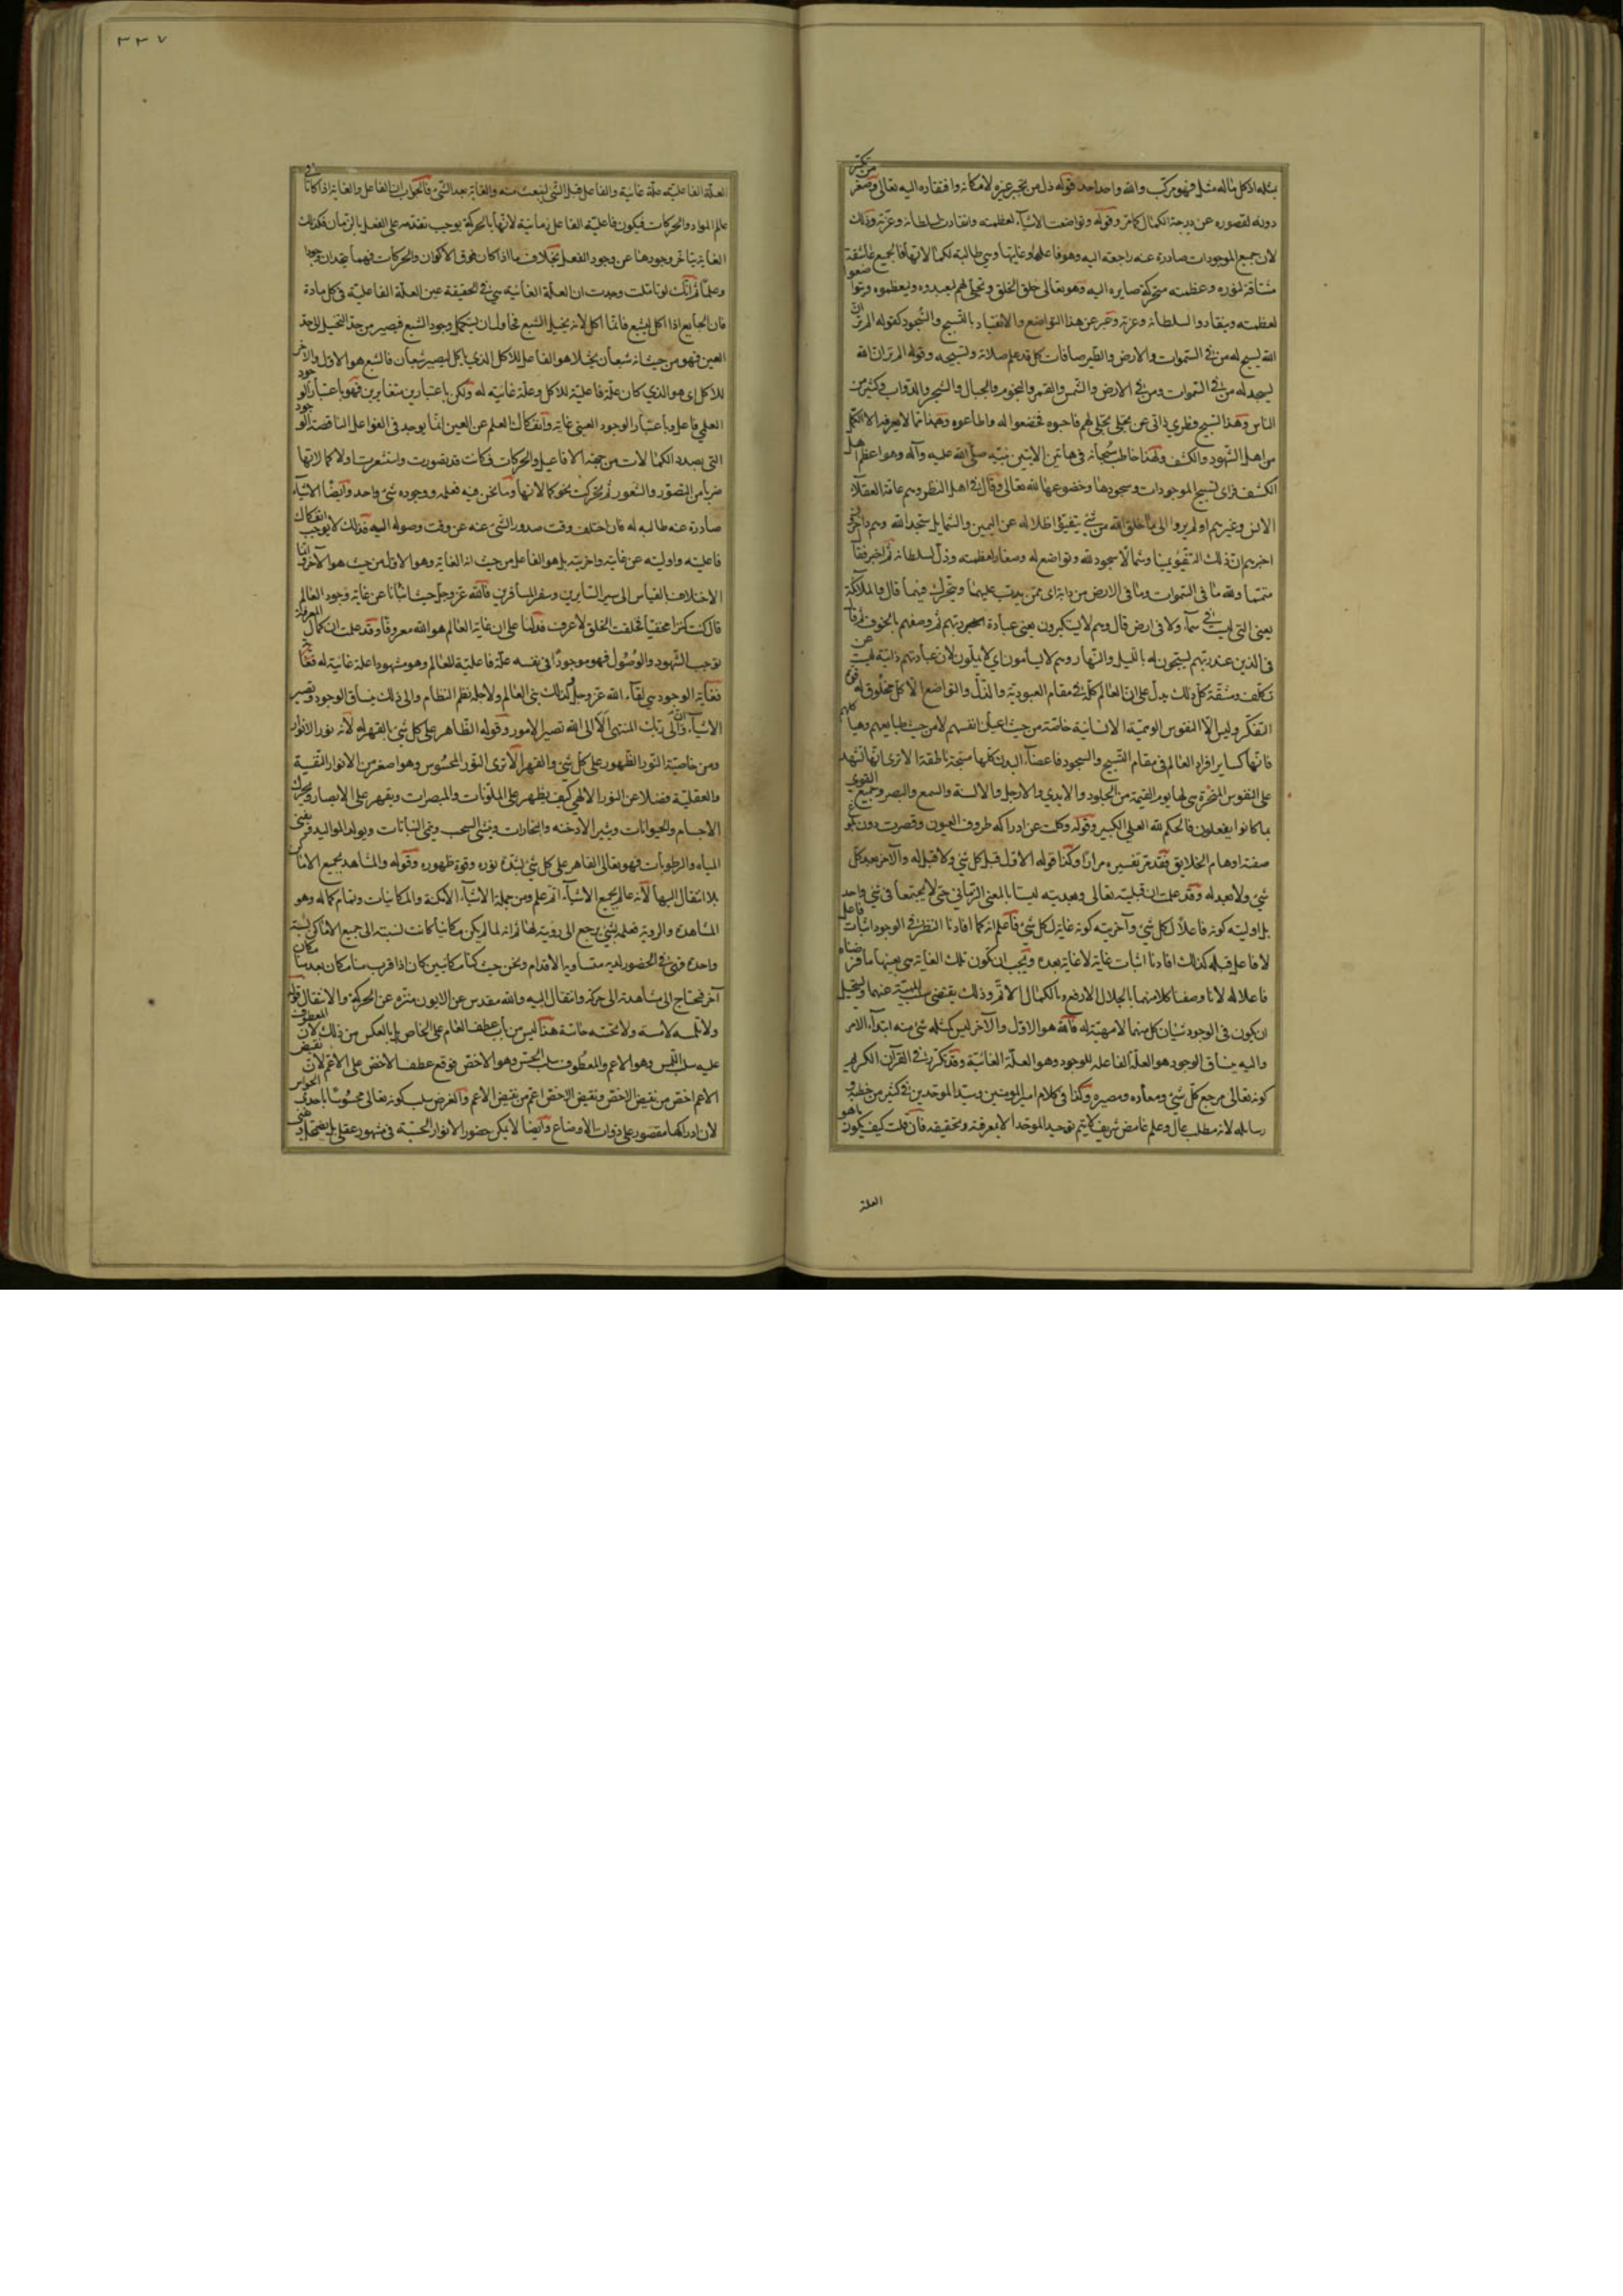 بمثله اذ كل ما له مثل فهو مركب والله واحد احد قوله ذل من تجبر غيره لامكانه وافتقاره اليه تعالى وصغر من تكبر
دونه لقصوره عن درجة الكمال كامر وقوله وتواضعت الاشياء لعظمته وانقادت لسلطانه وعزته وذلك
لان جميع الموجودات صادرة عنه راجعة اليه وهو فاعلها وغايتها وهي طالبة لكمالاتها فالجميع عاشقة
مشتاقة لنوره وعظمته متحركة صايره اليه وهو تعالى خلق الخلق وتجلى لهم ليعبدوه ويعظموه ويتواضعوا
لعظمته وينقادوا لسلطانه وعزته وعبر عن هذا التواضع والانقياد بالتسبيح والسجود كقوله الم تر ان
الله يسبح له من في السموات والارض والطير صافات كل قد علم صلاته وتسبيحه وقوله الم تر ان الله
يسجد له من في السموات ومن في الارض والشمس والقمر والنجوم والجبال والشجر والدواب وكثير من
الناس وهذا التسبيح فطري ذاتي عن تجلى تجلى لهم فاحبوه فخضعوا له واطاعوه وهذا مما لا يعرفه الا الكمل
من اهل الشهود والكشف ولهذا خاطب سبحانه في هاتين الايتين نبيه صلى الله عليه وآله وهو اعظم اهل
الكشف فراى تسبيح الموجودات وسجودها وخضوعها لله تعالى وقال في اهل النظر وهم عامة العقلاء
الانس وغيرهم اولم يروا الى ما خلق الله من شئ يتفيؤا ظلاله عن اليمين والشمايل سجدا لله وهم داخرون
اخبرهم ان ذلك التفيؤ يمينا وشمالا سجود لله وتواضع له وصغار لعظمته وذل لسلطانه ثم اخبر فقال
متمما ولله ما في السموات وما في الارض من دابة اى ممن يدب عليهما ويتحرك فيهما قال والملائكة
يعنى التى ليست في سماء ولا في ارض قال وهم لا يستكبرون يعنى عبادة ربهم ثم وصفهم بالخوف ثم قال
في الذين عند ربهم يسبحون له بالليل والنهار وهم لا يسأمون اى لا يملون لان عبادتهم ذاتية ليست عن
تكلف ومشقة كل ذلك يدل على ان العالم كله في مقام العبودية والذل والتواضع الا كل مخلوق له قوة
التفكر وليس الا النفوس الانسانية خاصة من حيث اعيان انفسهم لا من حيث طبايعهم وهياكلهم
فانها كساير افراد العالم في مقام التسبيح والسجود فاعضاء البدن كلها مسبحة ناطقة الا ترى انها تشهد
على النفوس المسخرة لها يوم القيمة من الجلود والايدي والارجل والالسنة والسمع والبصر وجميع القوى
بما كانوا يفعلون فالحكم لله العلي الكبير وقوله وكلت عن ادراكه طروف العيون وقصرت دون بلوغ
صفته اوهام الخلايق فقد مر تفسيره مرارا وكذا قوله الاول قبل كل شئ ولا قبل له والآخر بعد كل
شئ ولا بعد له وقد علمت ان قبليته تعالى وبعديته ليستا بالمعنى الزماني حتى لا يجتمعا في شئ واحد
بل اوليته كونه فاعلا لكل شئ وآخريته كونه غاية لكل شئ فاعلم انه كما افادنا النظر في الوجود اثبات فاعل
لا فاعل قبله كذلك افادنا اثبات غاية لا غاية بعده ويجب ان تكون تلك الغاية هي بعينها ما فرضناه
فاعلا له لانا وصفنا كلا منهما بالجلال الارفع والكمال الاتم وذلك يقتضى سلب المهية عنهما ويستحيل
ان يكون في الوجود شيئان كل منهما لا مهية له فالله هو الاول والآخر ليس كمثله شئ منه ابتداء الامر
واليه ينساق الوجود هو العلة الفاعلة للوجود وهو العلة الغائية وقد تكرر في القرآن الكريم
كونه تعالى مرجع كل شئ ومعاده ومصيره وكذا في كلام امير المومنين وسيد الموحدين في كثير من خطبه و
رسائله لانه مطلب عال وعلم غامض شريف لا يتم توحيد الموحد الا بمعرفته وتحقيقه فان قلت كيف يكون ما هو
العلة
٣٣٧
العلة الفاعلية علة غائية والفاعل قبل الشئ لينبعث منه والغاية بعد الشئ فالجواب ان الفاعل والغاية اذا كانا في
عالم المواد والحركات فيكون فاعلية الفاعل زمانية لانها بالحركة يوجب تقدمه على الفعل بالزمان فكذلك
الغاية يتاخر وجودها عن وجود الفعل بخلاف ما اذا كان فوق الاكوان والحركات فهما يتحدان وجودا
وعلما ثم انك لو تاملت وجدت ان العلة الغائية هي في الحقيقة عين العلة الفاعلية في كل مادة
فان الجايع اذا اكل ليشبع فانما اكل لانه يخيل الشبع فحاول ان يستكمل وجود الشبع فيصير من حد التخيل الى حد
العين فهو من حيث انه شبعان تخيلا هو الفاعل للاكل الذي ياكل ليصير شبعان فالشبع هو الاول والآخر
للاكل اى هو الذي كان علة فاعلية للاكل وعلة غائية له ولكن باعتبارين متغايرين فهو باعتبار الوجود
العلمي فاعل وباعتبار الوجود العيني غاية وانفكاك العلم عن العين انما يوجد في الفواعل الناقصة الوجود
التي بصدد الكمالات من جهة الافاعيل والحركات فكانت قد تصورت واستشعرت اولا كمالاتها
ضربا من التصور والشعور ثم تحركت نحو كمالاتها وما نحن فيه فعلمه ووجوده شئ واحد وايضا الاشياء
صادرة عنه طالبة له فان اختلف وقت صدور الشئ عنه عن وقت وصوله اليه فذلك لا يوجب انفكاك
فاعليته واوليته عن غايته واخريته بل هو الفاعل من حيث انه الغاية وهو الاول من حيث هو الآخر وانما
الاختلاف بالقياس الى سير السايرين وسفر المسافرين فالله عز وجل حيث انبأنا عن غاية وجود العالم
قال كنت كنزا مخفيا فخلقت الخلق لاعرف فدلنا على ان غاية العالم هو الله معروفا وقد علمت ان كمال المعرفة
توجب الشهود والوصول فهو موجودا في نفسه علة فاعلية للعالم وهو مشهودا علة غائية له
فغاية الوجود هي لقاء الله عز وجل لذلك بنى العالم ولاجله نظم النظام والى ذلك ينساق الوجود وتصير
الاشياء وان الى ربك المنتهى الا الى الله تصير الامور وقوله الظاهر على كل شئ بالقهر له لانه نور الانوار
ومن خاصية النور الظهور على كل شئ والقهر الا ترى النور المحسوس وهو اصغر من الانوار النفسية
والعقلية فضلا عن النور الالهي كيف يظهر على الملونات والمبصرات ويقهر على الابصار ويحرك
الاجسام والحيوانات ويثير الادخنه والبخارات وينشئ السحب وينمي النباتات ويولد المواليد ويفنى
المياه والرطوبات فهو تعالى القاهر على كل شئ بشدة نوره وقوة ظهوره وقوله والمشاهد لجميع الاماكن
بلا انتقال اليها لانه عالم بجميع الاشياء اتم علم ومن جملة الاشياء الامكنة والمكانيات وتمام كماله وهو
المشاهدة والروية فعلمه بشئ يرجع الى رويته لها ثم انه لما لم يكن مكانيا كانت نسبته الى جميع الاماكن نسبة
واحدة فهى في الحضور لديه متساوية الاقدام ونحن حيث كنا مكانيين كان اذا قرب منا مكان بعد منا مكان
آخر فنحتاج الى مشاهدته الى حركة وانتقال اليه والله مقدس عن الايون منزه عن الحركة والانتقال قوله
ولا تلمسه لامسة ولا تحسه حاسة هذا ليس من باب عطف العام على الخاص بل بالعكس من ذلك لان المعطوف
عليه سلب اللمس وهو الاعم والمعطوف سلب الحس وهو الاخص فوقع عطف الاخص على الاعم لان نقيض
الاعم اخص من نقيض الاخص ونقيض الاخص اعم من نقيض الاعم والغرض سلب كونه تعالى محسوسا باحدى الحواس
لان ادراكها مقصور على ذوات الاوضاع وايضا لا يمكن حضور الانوار الحسية في مشهور عقلى بل